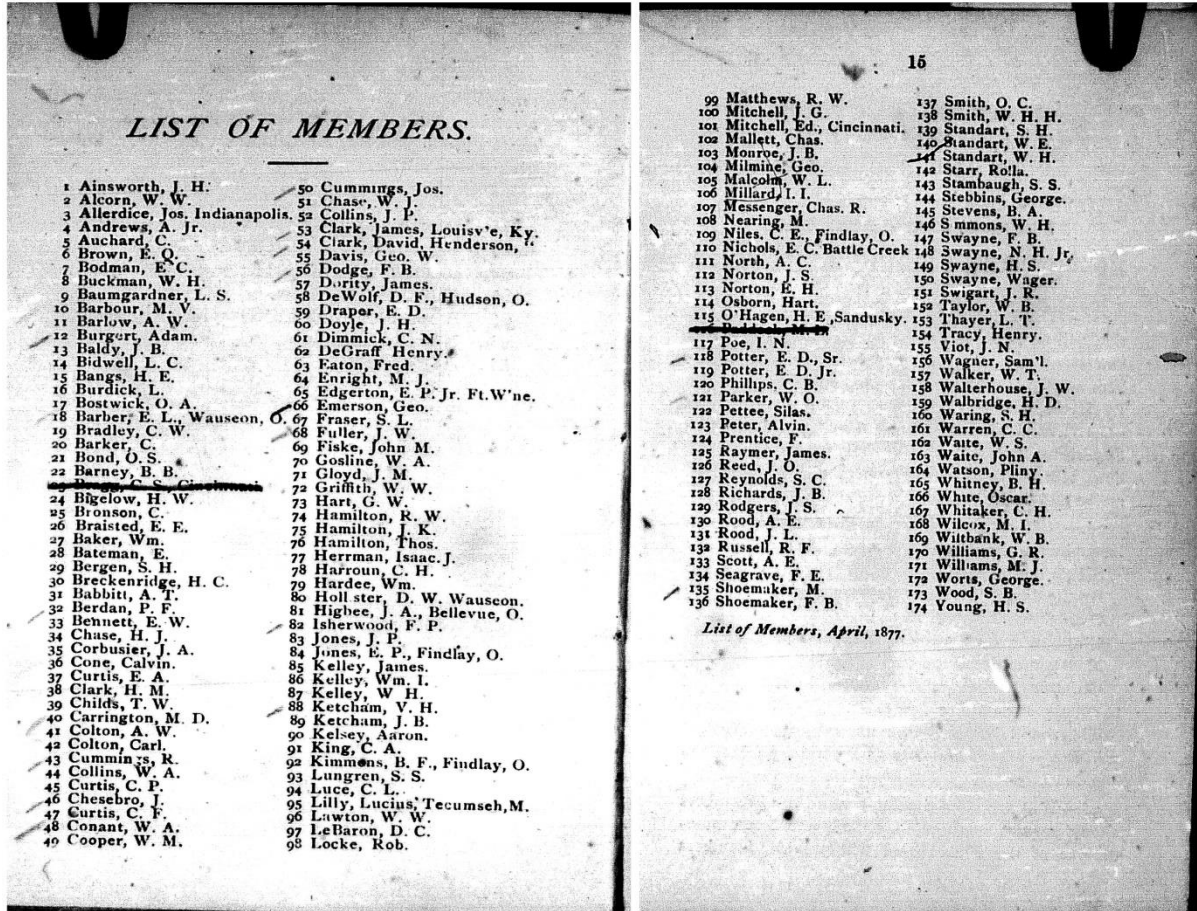 LIST OF MEMBERS.
1 Ainsworth, J. H.
2 Alcorn, W. W.
3 Allerdice, Jos. Indianapolis.
4 Andrews, A. Jr.
5 Auchard, C.
6 Brown, E. Q.
7 Bodman, E. C.
8 Buckman, W. H.
9 Baumgardner, L. S.
10 Barbour, M. V.
11 Barlow, A. W.
12 Burgert, Adam.
13 Baldy, J. B.
14 Bidwell, L. C.
15 Bangs, H. E.
16 Burdick, L.
17 Bostwick, O. A.
18 Barber, E. L., Wauseon, O.
19 Bradley, C. W.
20 Barker, C.
21 Bond, O. S.
22 Barney, B. B.
24 Bigelow, H. W.
25 Bronson, C.
26 Braisted, E. E.
27 Baker, Wm.
28 Bateman, E.
29 Bergen, S. H.
30 Breckenridge, H. C.
31 Babbitt, A. T.
32 Berdan, P. F.
33 Bennett, E. W.
34 Chase, H. J.
35 Corbusier, J. A.
36 Cone, Calvin.
37 Curtis, E. A.
38 Clark, H. M.
39 Childs, T. W.
40 Carrington, M. D.
41 Colton, A. W.
42 Colton, Carl.
43 Cummings, R.
44 Collins, W. A.
45 Curtis, C. P.
46 Chesebro, J.
47 Curtis, C. F.
48 Conant, W. A.
49 Cooper, W. M.
50 Cummings, Jos.
51 Chase, W. J.
52 Collins, J. P.
53 Clark, James, Louisv'e, Ky.
54 Clark, David, Henderson, "
55 Davis, Geo. W.
56 Dodge, F. B.
57 Dority, James.
58 DeWolf, D. F., Hudson, O.
59 Draper, E. D.
60 Doyle, J. H.
61 Dimmick, C. N.
62 DeGraff Henry.
63 Eaton, Fred.
64 Enright, M. J.
65 Edgerton, E. P. Jr. Ft.W'ne.
66 Emerson, Geo.
67 Fraser, S. L.
68 Fuller, J. W.
69 Fiske, John M.
70 Gosline, W. A.
71 Gloyd, J. M.
72 Griffith, W. W.
73 Hart, G. W.
74 Hamilton, R. W.
75 Hamilton, J. K.
76 Hamilton, Thos.
77 Herrman, Isaac J.
78 Harroun, C. H.
79 Hardee, Wm.
80 Holl ster, D. W. Wauseon.
81 Higbee, J. A., Bellevue, O.
82 Isherwood, F. P.
83 Jones, J. P.
84 Jones, E. P., Findlay, O.
85 Kelley, James.
86 Kelley, Wm. I.
87 Kelley, W H.
88 Ketcham, V. H.
89 Ketcham, J. B.
90 Kelsey, Aaron.
91 King, C. A.
92 Kimmons, B. F., Findlay, O.
93 Lungren, S. S.
94 Luce, C. L.
95 Lilly, Lucius, Tecumseh, M.
96 Lawton, W. W.
97 LeBaron, D. C.
98 Locke, Rob.
15
99 Matthews, R. W.
100 Mitchell, J. G.
101 Mitchell, Ed., Cincinnati.
102 Mallett, Chas.
103 Monroe, J. B.
104 Milmine, Geo.
105 Malcolm, W. L.
106 Millard, I. I.
107 Messenger, Chas. R.
108 Nearing, M.
109 Niles, C. E., Findlay, O.
110 Nichols, E. C. Battle Creek
111 North, A. C.
112 Norton, J. S.
113 Norton, E. H.
114 Osborn, Hart.
115 O'Hagen, H. E, Sandusky.
117 Poe, I. N.
118 Potter, E. D., Sr.
119 Potter, E. D. Jr.
120 Phillips, C. B.
121 Parker, W. O.
122 Pettee, Silas.
123 Peter, Alvin.
124 Prentice, F.
125 Raymer, James.
126 Reed, J. O.
127 Reynolds, S. C.
128 Richards, J. B.
129 Rodgers, J. S.
130 Rood, A. E.
131 Rood, J. L.
132 Russell, R. F.
133 Scott, A. E.
134 Seagrave, F. E.
135 Shoemaker, M.
136 Shoemaker, F. B.
137 Smith, O. C.
138 Smith, W. H. H.
139 Standart, S. H.
140 Standart, W. E.
141 Standart, W. H.
142 Starr, Rolla.
143 Stambaugh, S. S.
144 Stebbins, George.
145 Stevens, B. A.
146 S mmons, W. H.
147 Swayne, F. B.
148 Swayne, N. H. Jr.
149 Swayne, H. S.
150 Swayne, Wager.
151 Swigart, J. R.
152 Taylor, W. B.
153 Thayer, L. T.
154 Tracy, Henry.
155 Viot, J. N.
156 Wagner, Sam'l.
157 Walker, W. T.
158 Walterhouse, J. W.
159 Walbridge, H. D.
160 Waring, S. H.
161 Warren, C. C.
162 Waite, W. S.
163 Waite, John A.
164 Watson, Pliny.
165 Whitney, B. H.
166 White, Oscar.
167 Whitaker, C. H.
168 Wilcox, M. I.
169 Wiltbank, W. B.
170 Williams, G. R.
171 Williams, M. J.
172 Worts, George.
173 Wood, S. B.
174 Young, H. S.
List of Members, April, 1877.